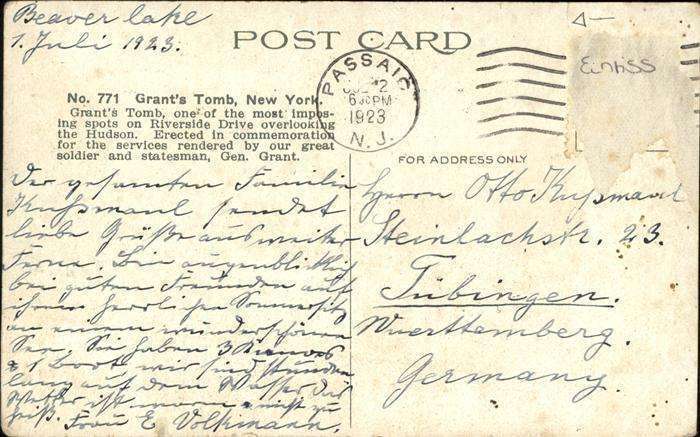 Beaver lake
1. Juli 1923.
POST CARD
PASSAIC
JUL 2
6 PM
1923
N. J.
No. 771 Grant's Tomb, New York.
Grant's Tomb, one of the most impos-
ing spots on Riverside Drive overlooking
the Hudson. Erected in commemoration
for the services rendered by our great
soldier and statesman, Gen. Grant.
FOR ADDRESS ONLY
Der gesamten Familie
Kußmaul sendet
liebe Grüße aus weiter
Ferne. Bin augenblicklich
bei guten Freunden auf
ihrem herrlichen Sommersitz
an einem wunderschönen
See. Sie haben 3
& 1 Boot, wir sind stunden
lang auf dem Wasser. Das
Wetter ist warm nicht zu
heiß. Frau E Volkmann.
Herrn Otto Kußmaul
Steinlachstr. 23.
Tübingen.
Wuerttemberg.
Germany.